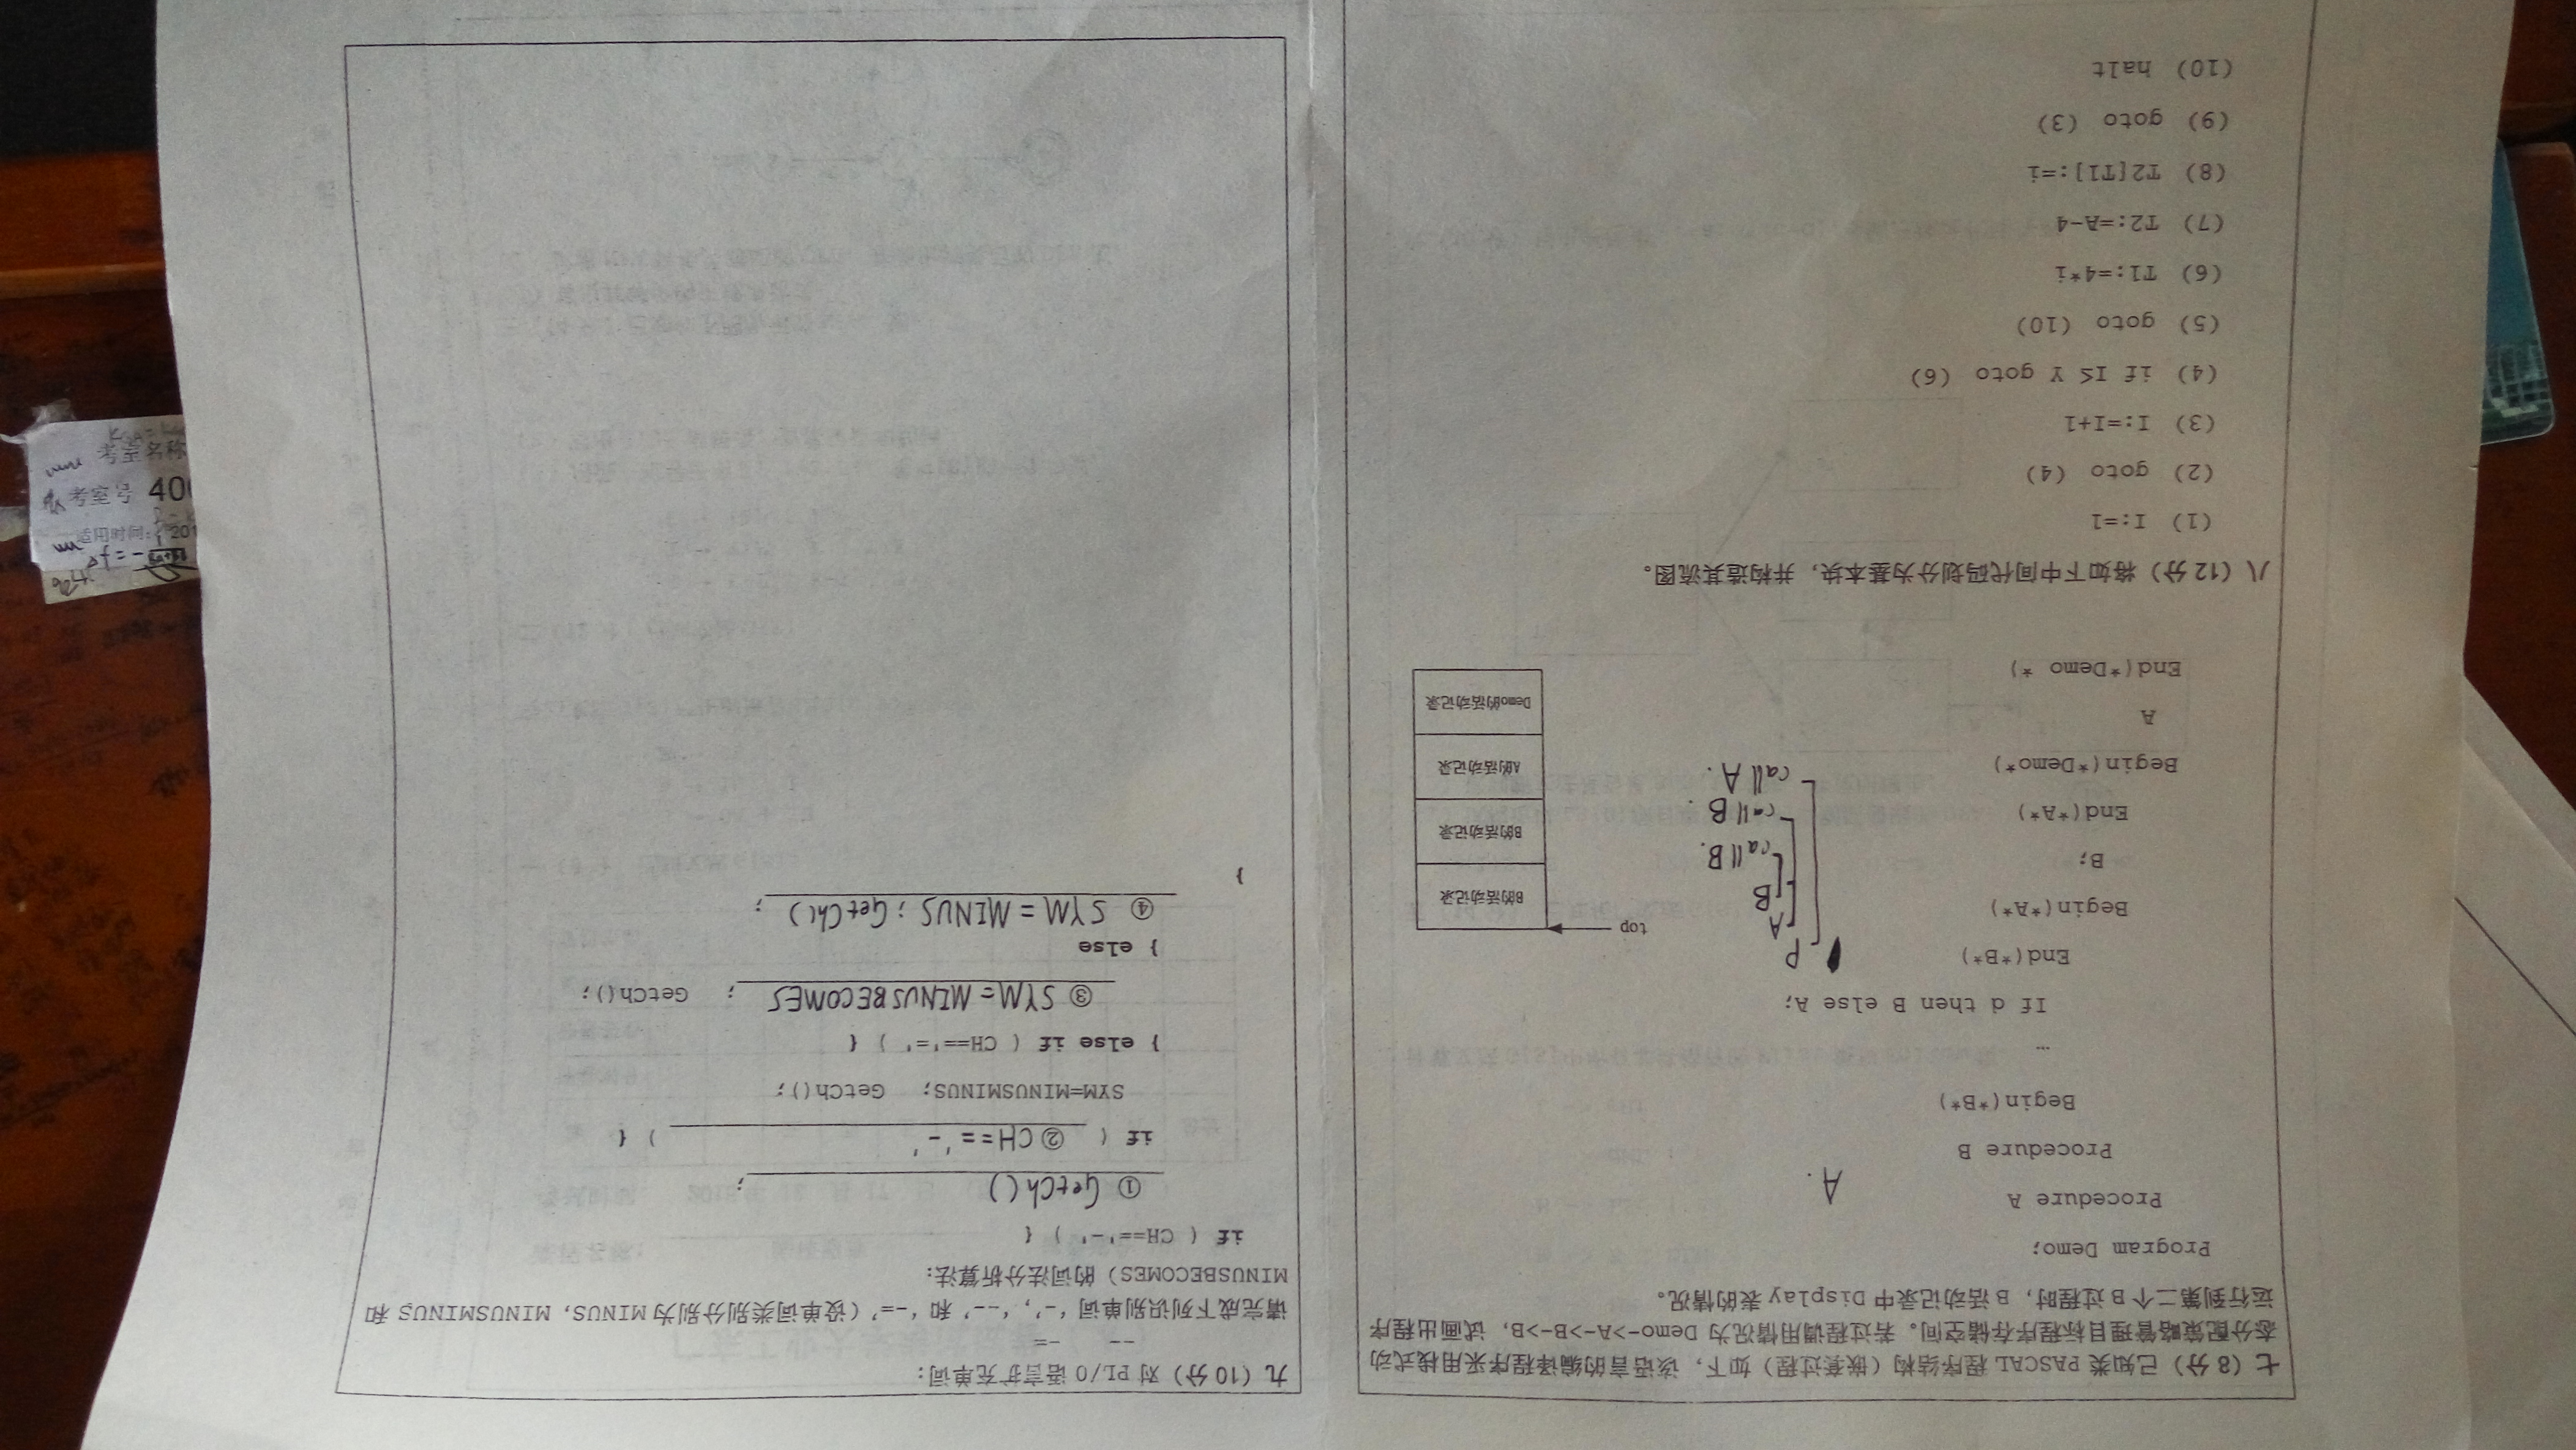 七（8分）已知类 PASCAL 程序结构（嵌套过程）如下，该语言的编译程序采用栈式动
态分配策略管理目标程序存储空间。若过程调用情况为 Demo->A->B->B，试画出程序
运行到第二个 B 过程时，B 活动记录中 Display 表的情况。
Program Demo;
Procedure A
A.
Procedure B
Begin(*B*)
…
If d then B else A;
End(*B*)
Begin(*A*)
B;
End(*A*)
Begin(*Demo*)
A
End(*Demo *)
P
A
B
call B.
call B.
call A.
top
B的活动记录
B的活动记录
A的活动记录
Demo的活动记录
八（12分）将如下中间代码划分为基本块，并构造其流图。
(1) I:=1
(2) goto (4)
(3) I:=I+1
(4) if I≤ Y goto (6)
(5) goto (10)
(6) T1:=4*i
(7) T2:=A-4
(8) T2[T1]:=i
(9) goto (3)
(10) halt
九（10分）对 PL/0 语言扩充单词：
-- -=
请完成下列识别单词‘-’，‘--’和‘-=’（设单词类别分别为 MINUS，MINUSMINUS 和
MINUSBECOMES）的词法分析算法：
if ( CH=='-' ) {
① GetCh() ;
if ( ② CH=='-' ) {
SYM=MINUSMINUS; GetCh();
} else if ( CH=='=' ) {
③ SYM=MINUSBECOMES ; GetCh();
} else
④ SYM=MINUS; GetCh() ;
}
考室名称
考室号 400
适用时间: 201